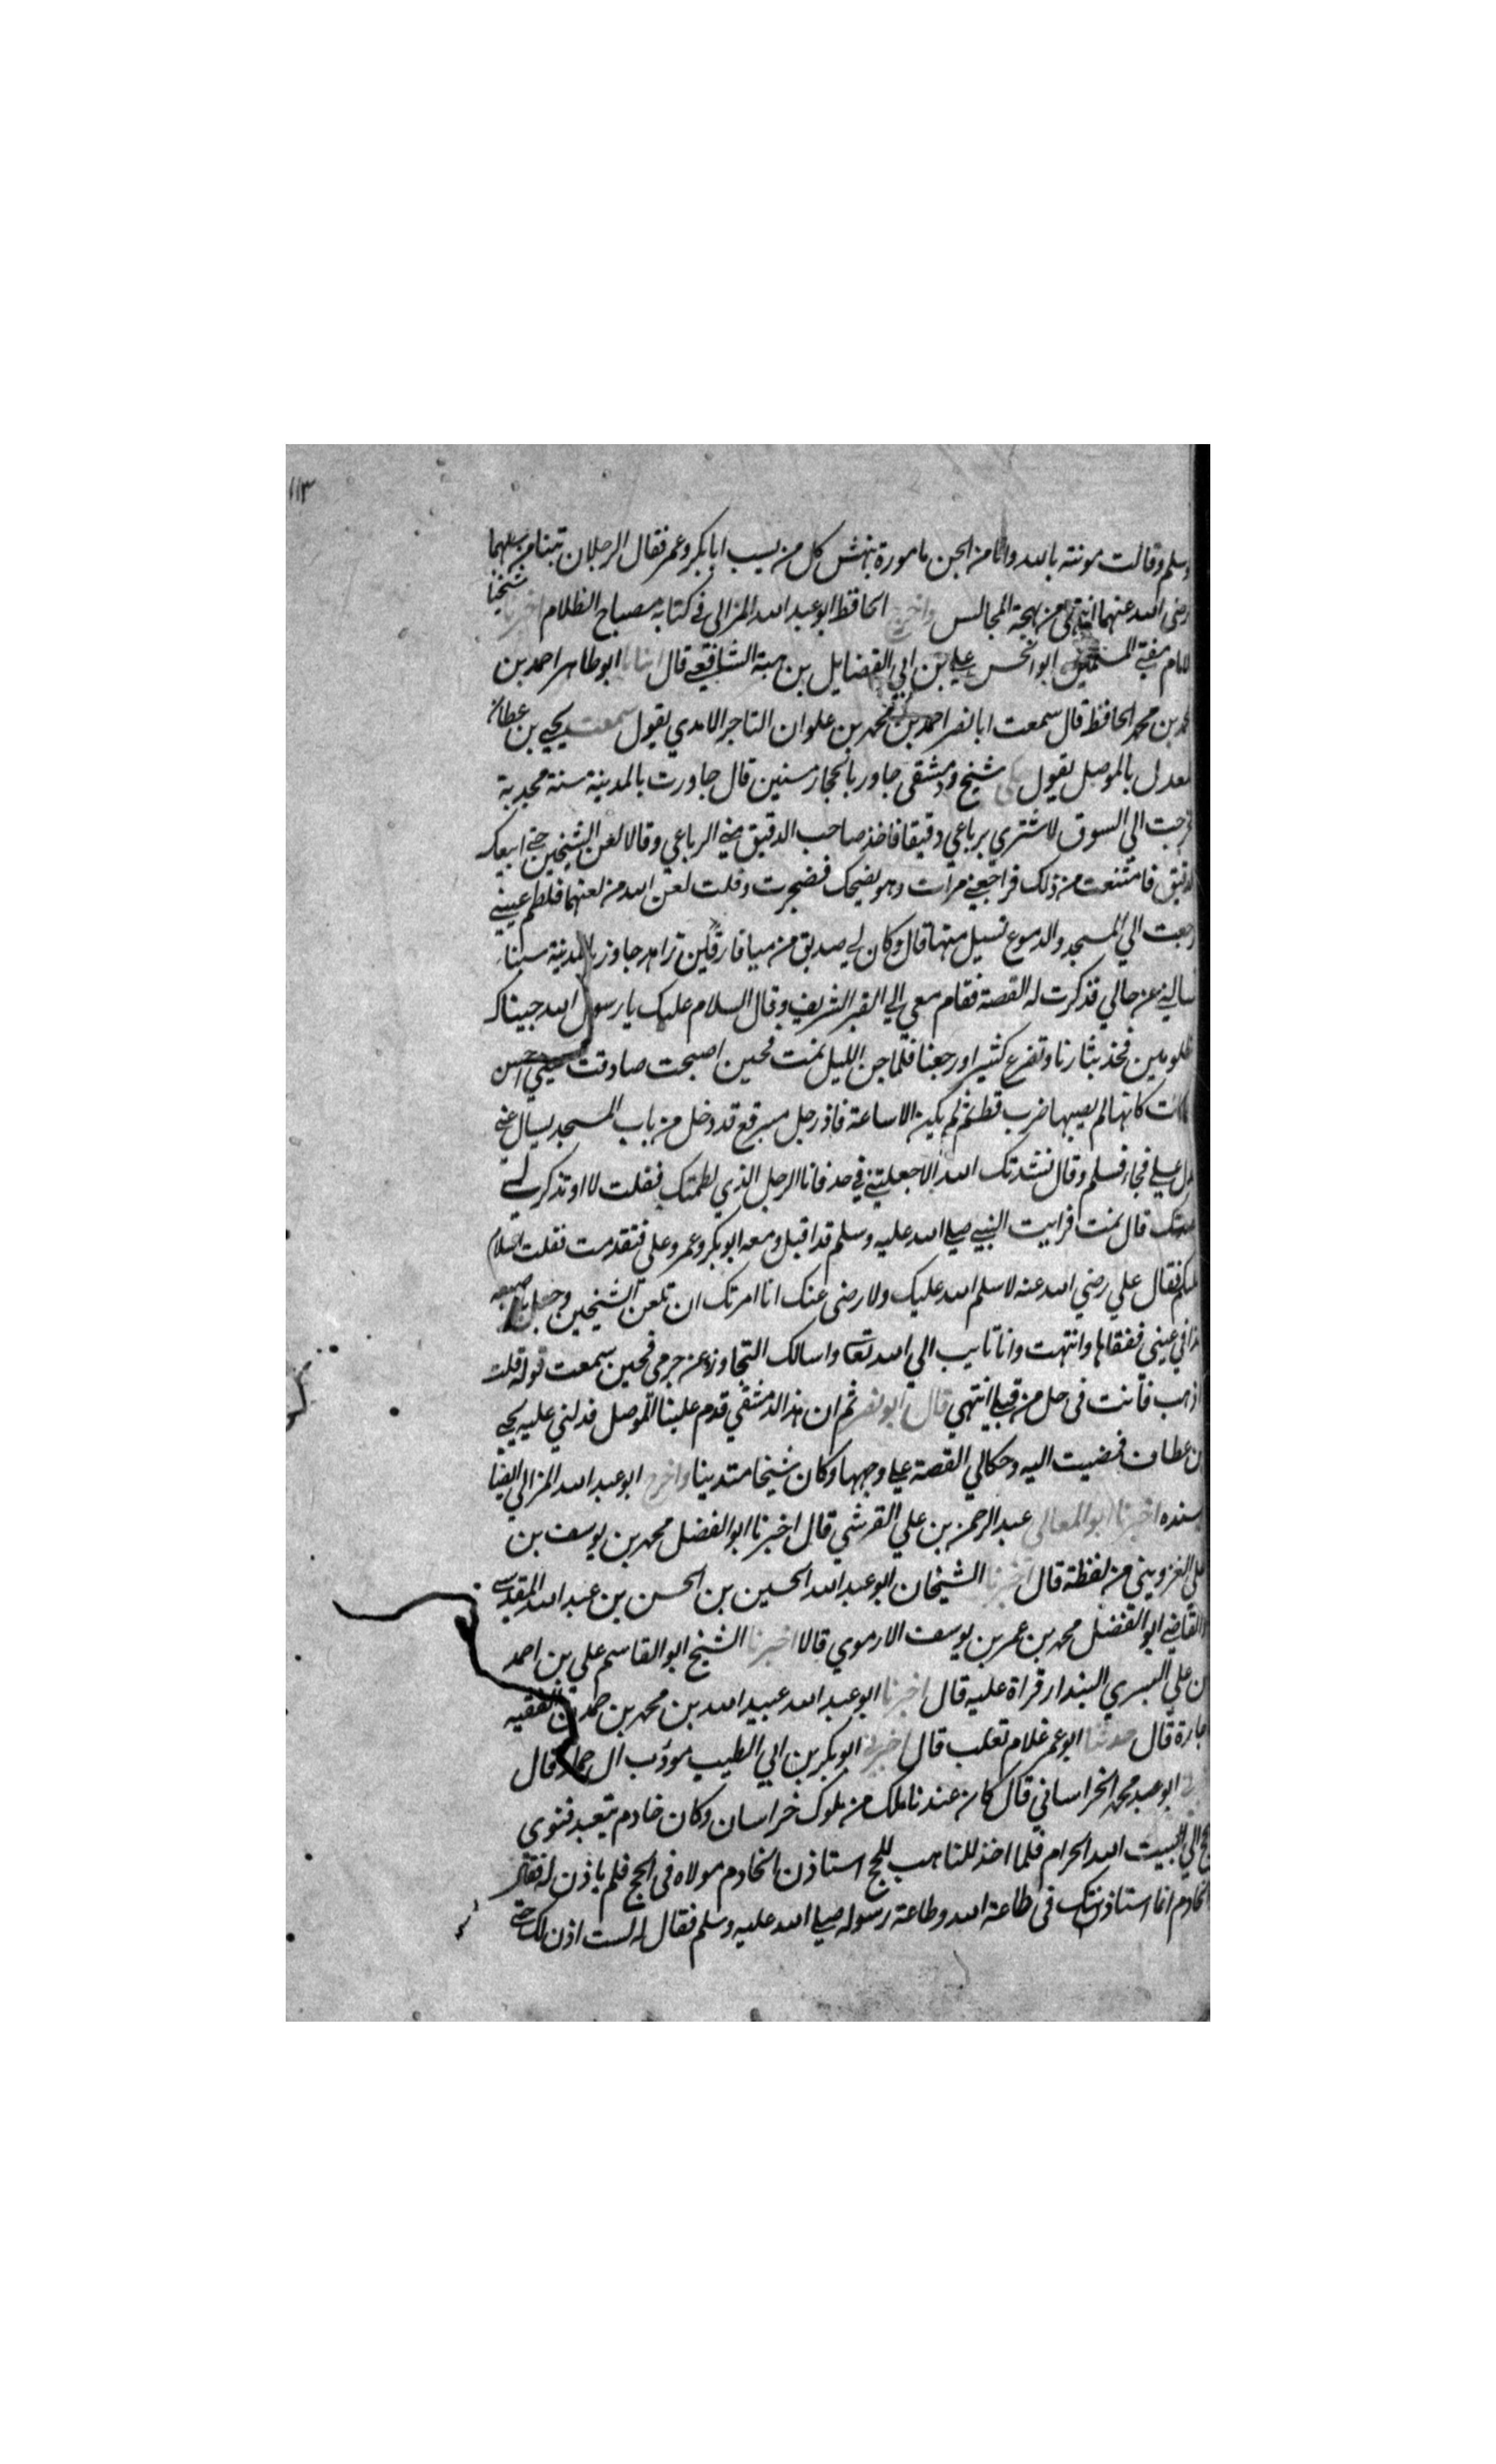 ١١٣
وسلم وقالت مومنة بالله وانا من الجن مامورة بنهش كل من يسب ابابكر وعمر فقال الرجلان تبنا من سبهما
رضي الله عنهما انتهى من بهجة المجالس واخرج الحافظ ابو عبد الله المزالي في كتابه مصباح الظلام اخبرنا شيخنا
الامام مفتي المسلمين ابو الحسن علي بن ابي الفضايل بن هبة الشافعي قال انبانا ابو طاهر احمد بن
محمد بن محمد الحافظ قال سمعت ابا نصر احمد بن محمد بن علوان التاجر الامدي يقول سمعت يحيي بن عطاف
المعدل بالموصل يقول حكى شيخ ودمشقي جاور بالحجاز سنين قال جاورت بالمدينة سنة مجدبة
فخرجت الي السوق لاشتري برباعي دقيقا فاخذ صاحب الدقيق مني الرباعي وقالا لعن الشيخين حتى ابيعك
الدقيق فامتنعت من ذلك فراجعني مرات وهو يضحك فضجرت وقلت لعن الله من لعنهما فلطم عيني
رجعت الي المسجد والدموع تسيل منها قال وكان لي صديق من ميافارقين زاهد جاور بالمدينة سنينا
فسالني عن حالي فذكرت له القصة فقام معي الي القبر الشريف وقال السلام عليك يا رسول الله جيناك
مظلومين فخذ بثارنا وتضرع كثيرا ورجعنا فلما جن الليل نمت فحين اصبحت صادفت عيني احسن
مما كانت كانها لم يصبها ضرب قط ثم لم يكن الا ساعة فاذ رجل مبرقع قد دخل من باب المسجد يسال عني
فدل علي فجاء فسلم وقال نشدتك الله الا جعلتني في حل فانا الرجل الذي لطمتك فقلت لا او تذكر لي
قصتك قال نمت فرايت النبي صلي الله عليه وسلم قد اقبل ومعه ابو بكر وعمر وعلي فتقدمت فقلت السلام
عليكم فقال علي رضي الله عنه لا سلم الله عليك ولا رضي عنك انا امرتك ان تلعن الشيخين وجعل اصبعه
هذا في عيني ففقاها وانتهت وانا تايب الي الله تعا واسالك التجاوز عن جرمي فحين سمعت قوله قلت
اذهب فانت في حل من قبلي انتهي قال ابو نصر ثم ان هذا الدمشقي قدم علينا الموصل فدلني عليه يحيي
بن عطاف فمضيت اليه وحكالي القصة علي وجهها وكان شيخا متدينا واخرج ابو عبد الله المزالي ايضا
بسنده اخبرنا ابو المعالي عبد الرحمن بن علي القرشي قال اخبرنا ابو الفضل محمد بن يوسف بن
علي الغزويني من لفظه قال اخبرنا الشيخان ابو عبد الله الحسين بن الحسن بن عبد الله المقدسي
والقاضي ابو الفضل محمد بن عمر بن يوسف الارموي قالا اخبرنا الشيخ ابو القاسم علي بن احمد
بن علي البسري البندار قراة عليه قال اخبرنا ابو عبد الله عبيد الله بن محمد بن حمدان الفقيه
اجازة قال حدثنا ابو عمر غلام ثعلب قال اخبرني ابو بكر بن ابي الطيب مودب ال حماد قال
ابو محمد الخراساني قال كان عندنا ملك من ملوك خراسان وكان خادم يتعبد فنوى
الحج الي البيت الله الحرام فلما اخذ للتاهب للحج استاذن الخادم مولاه في الحج فلم ياذن له فقال
الخادم انما استاذنتك في طاعة الله وطاعة رسوله صلي الله عليه وسلم فقال له لست اذن لك حتى